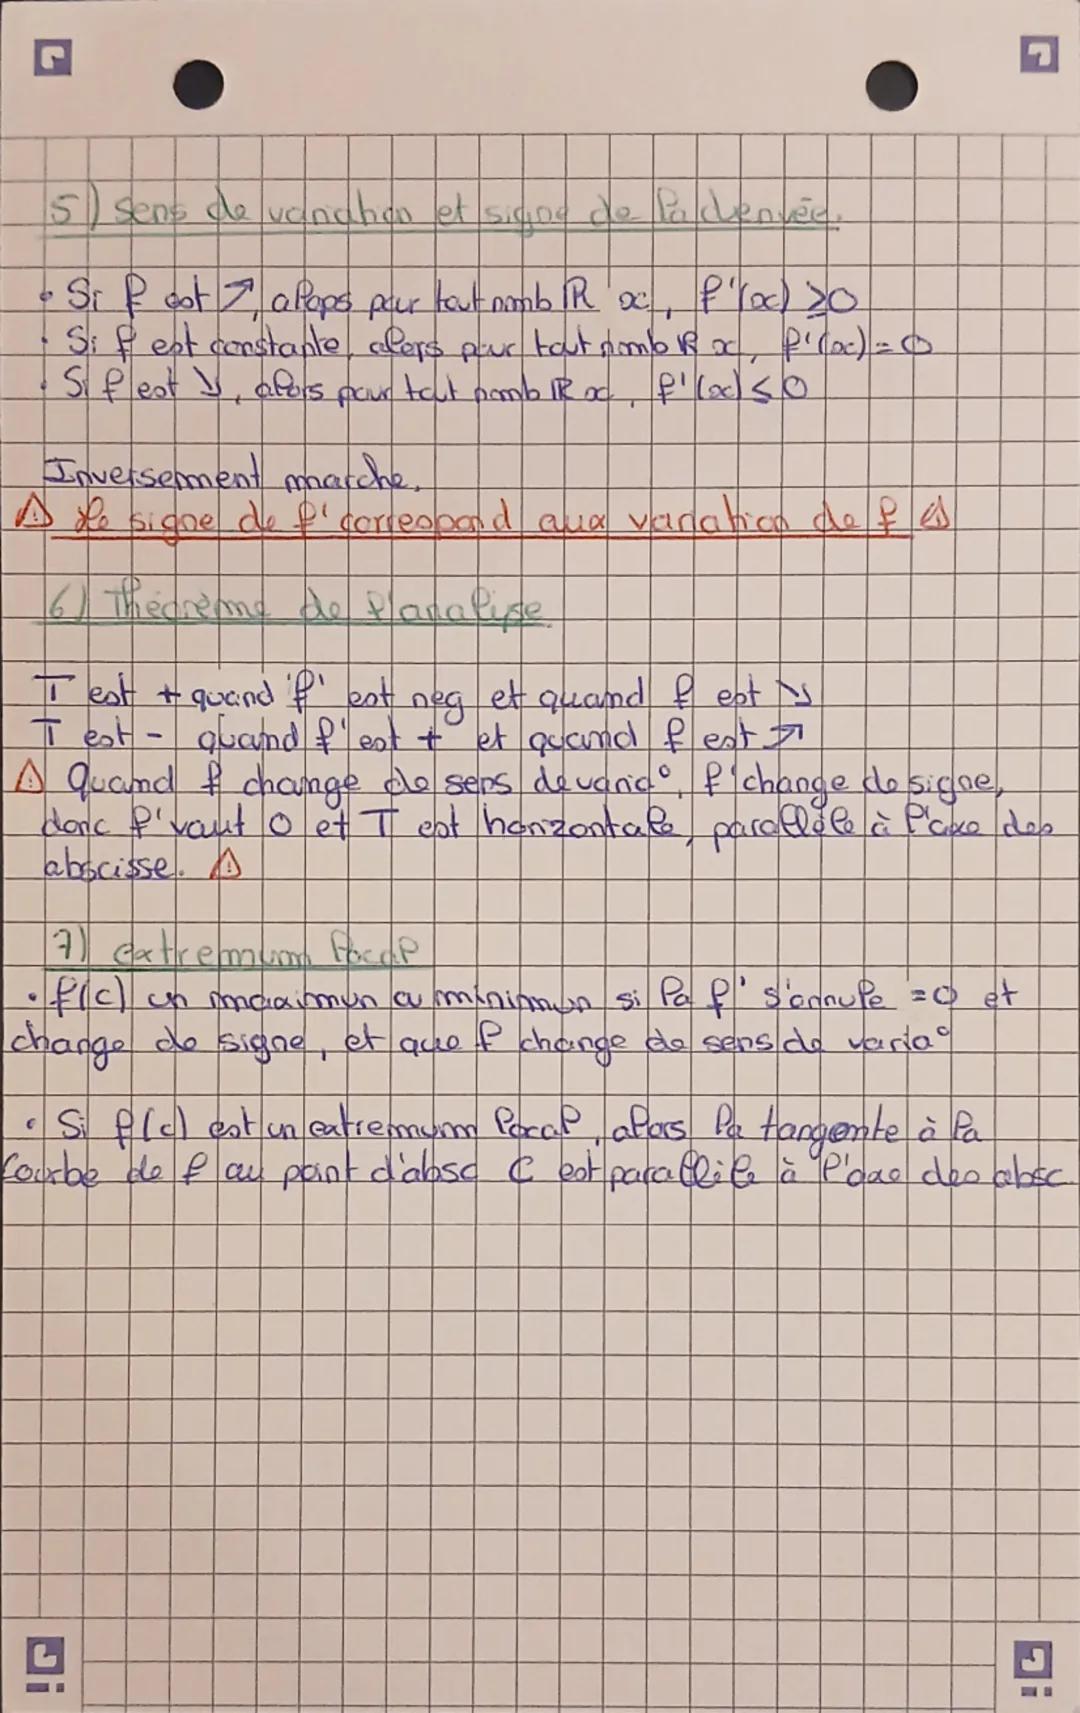 5) Sens de variation et signe de la dérivée.
• Si f est ↗, alors pour tout nomb ℝ x, f'(x) ≥0
• Si f est constante, alors pour tout nomb ℝ x, f'(x)=0
• Si f est ↘, alors pour tout nomb ℝ x, f'(x)≤0
Inversement marche.
⚠ Le signe de f' correspond aux variation de f ⚠
6) Théorème de l'analyse
T est + quand f' est neg et quand f est ↘
T est - quand f' est + et quand f est ↗
⚠ Quand f change de sens de varia°, f' change de signe,
donc f' vaut 0 et T est horizontale, parallèle à l'axe des
abscisse. ⚠
7) extremum local
• f(c) un maximun ou minimun si la f' s'annule =0 et
change de signe, et que f change de sens de varia°
• Si f(c) est un extremum local, alors la tangente à la
courbe de f au point d'absc c est parallèle à l'axe des absc